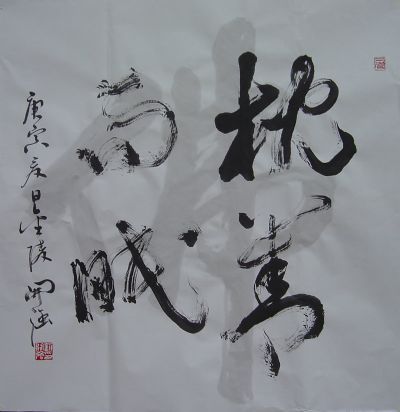 枕善
而眠
庚寅夏日金陵